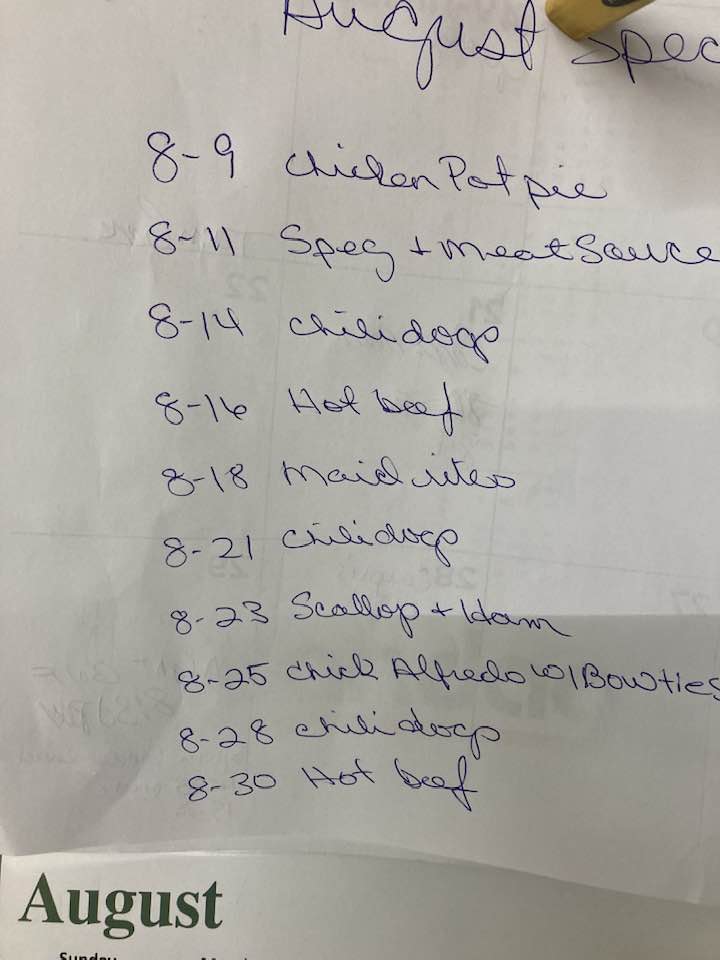 August Spec
8-9 Chicken Pot pie
8-11 Speg + Meat Sauce
8-14 Chili dogs
8-16 Hot beef
8-18 Maid rites
8-21 Chili dogs
8-23 Scallop + Ham
8-25 Chick Alfredo w/Bowties
8-28 Chili dogs
8-30 Hot beef
August
Sunday